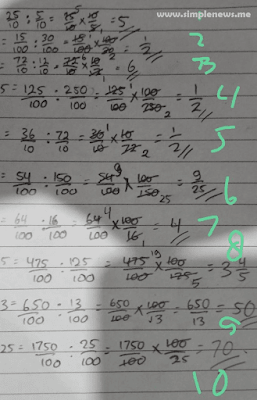 www.simplenews.me
25/10 : 5/10 = 25/10 × 10/5 = 5
15/10 : 30/10 = 15/10 × 10/30 = 1/2 2
72/10 : 12/10 = 72/10 × 10/12 = 6 3
5 = 125/100 : 250/100 = 125/100 × 100/250 = 1/2 4
= 36/10 : 72/10 = 36/10 × 10/72 = 1/2 5
= 54/100 : 150/100 = 54/100 × 100/150 = 9/25 6
= 64/100 : 16/100 = 64/100 × 100/16 = 4 7
8
5 = 475/100 : 125/100 = 475/100 × 100/125 = 3 4/5
3 = 650/100 : 13/100 = 650/100 × 100/13 = 650/13 = 50
9
25 = 1750/100 : 25/100 = 1750/100 × 100/25 = 70
10